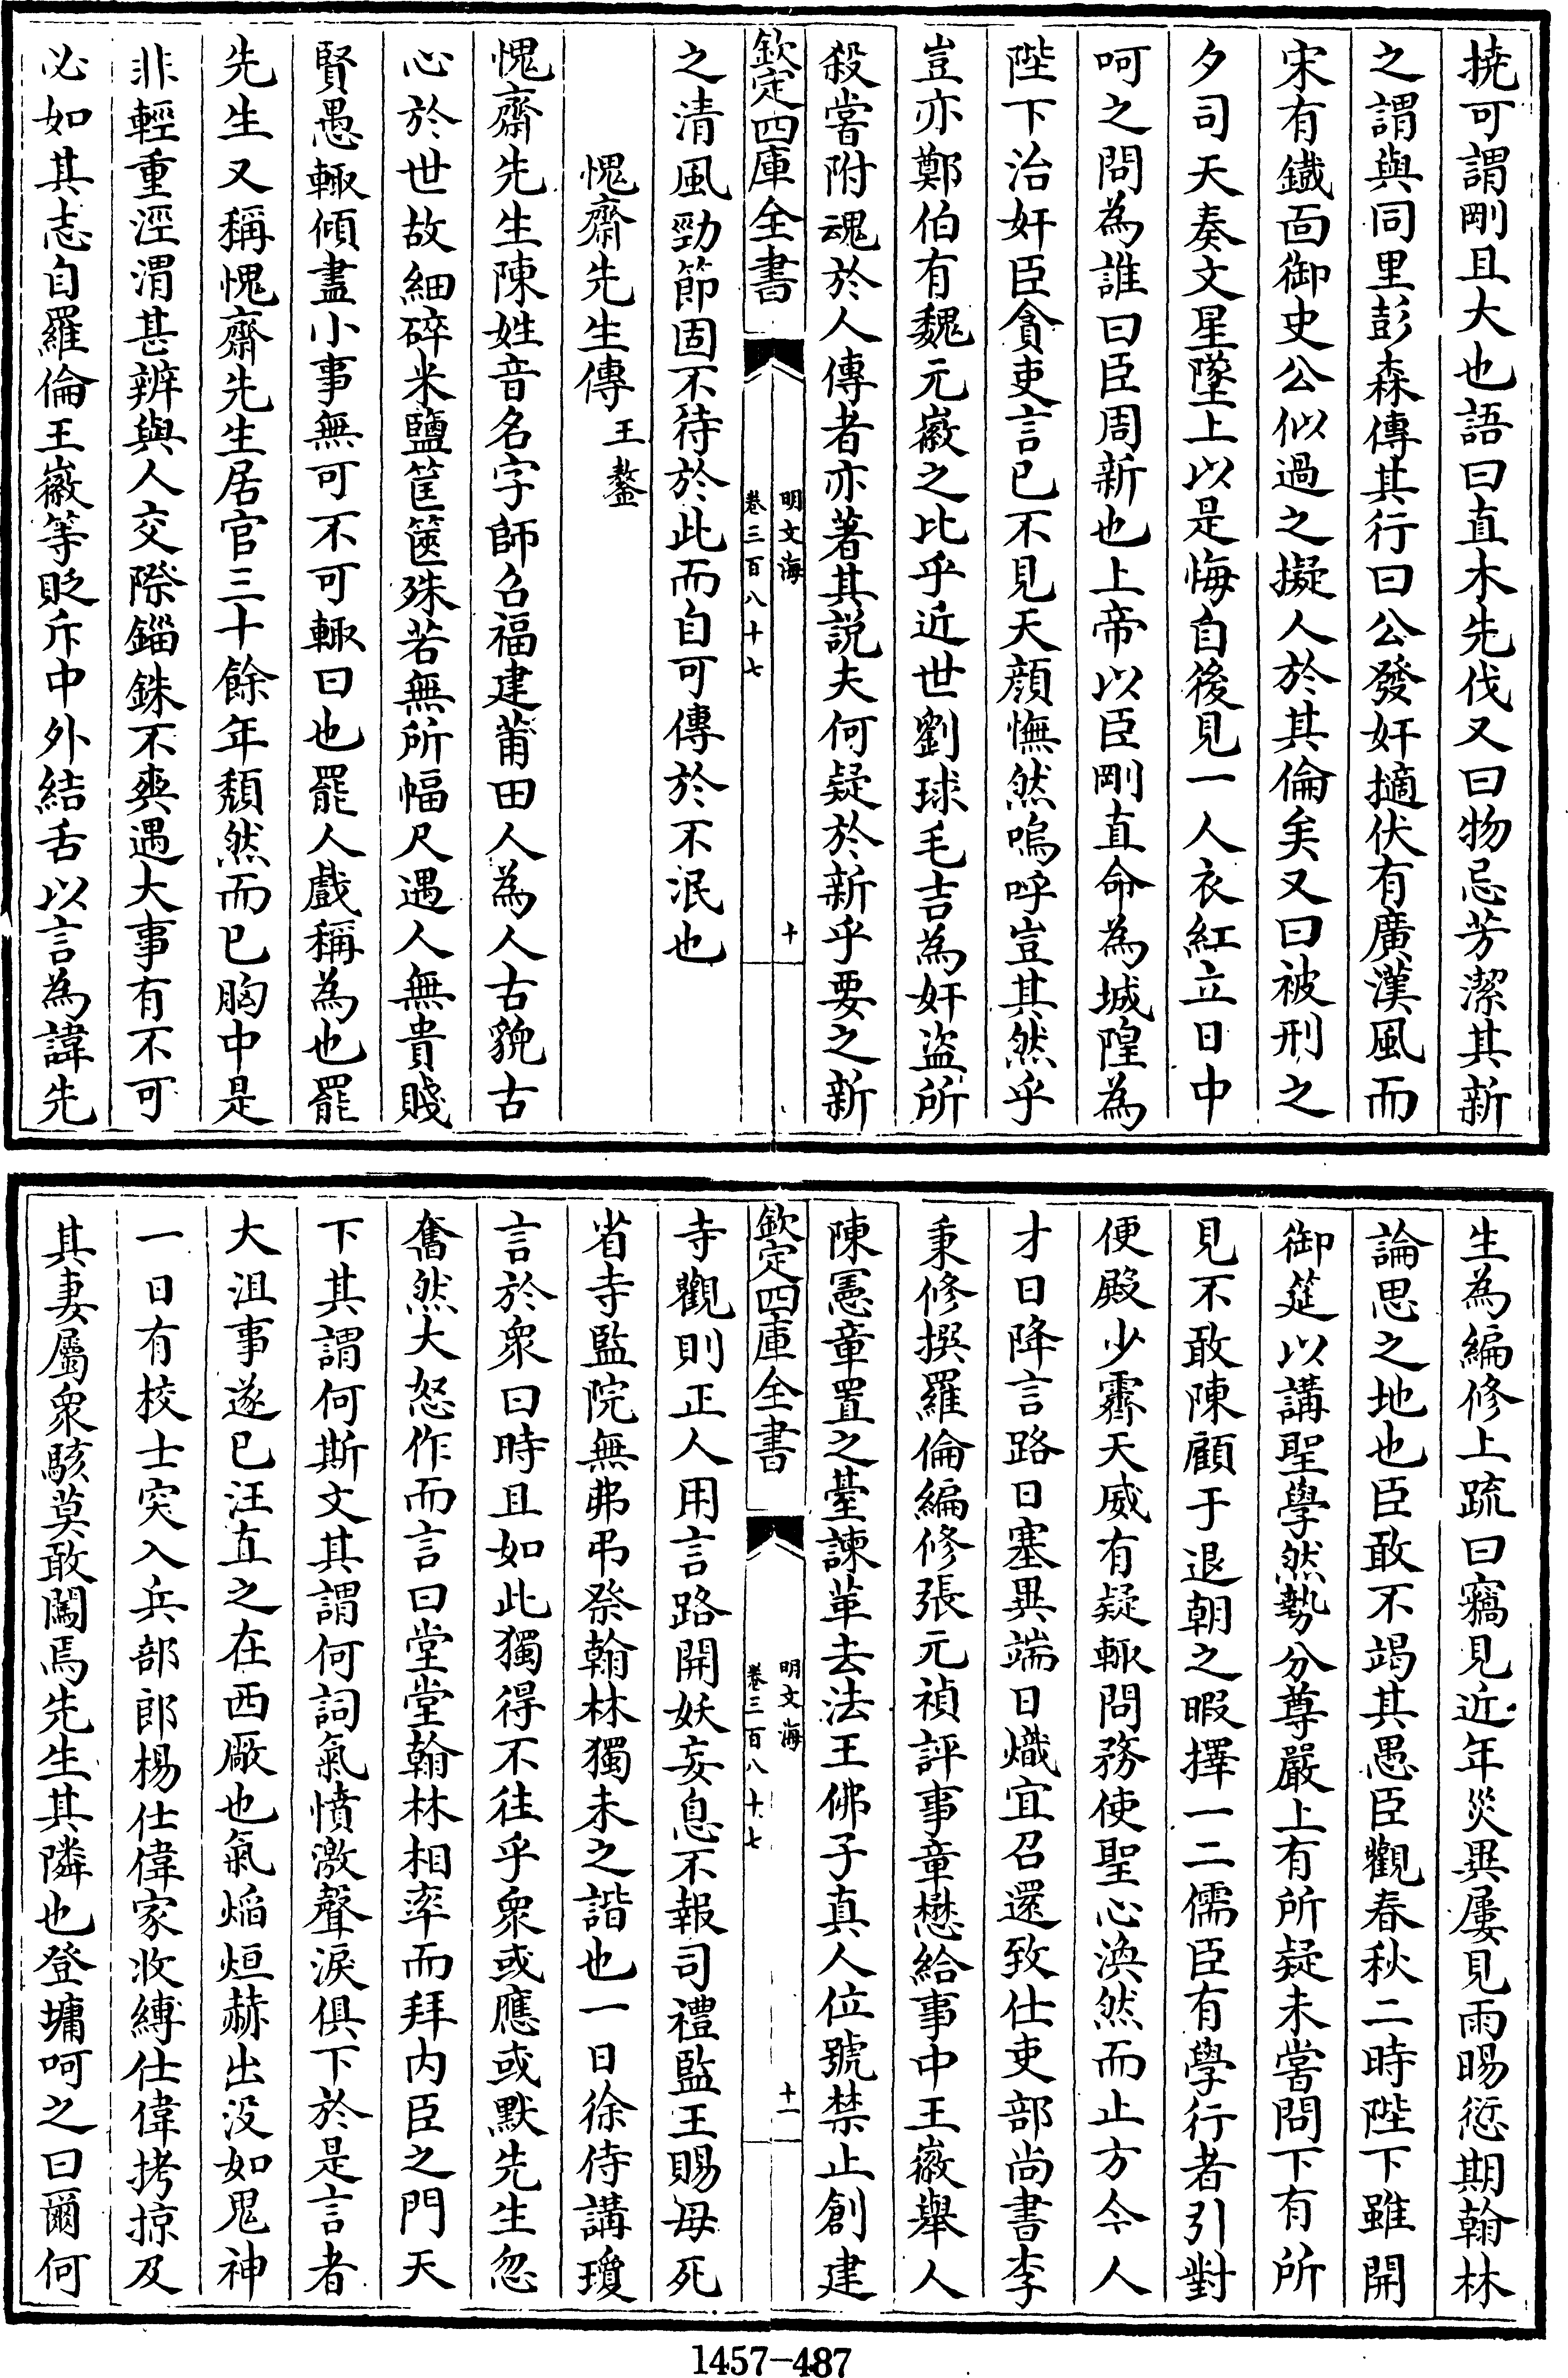 撓可謂剛且大也語曰直木先伐又曰物忌芳潔其新
之謂與同里彭森傳其行曰公發奸擿伏有廣漢風而
宋有鐵面御史公似過之擬人於其倫矣又曰被刑之
夕司天奏文星墜上以是悔自後見一人衣紅立日中
呵之問為誰曰臣周新也上帝以臣剛直命為城隍為
陛下治奸臣貪吏言已不見天顔憮然嗚呼豈其然乎
豈亦鄭伯有魏元徽之比乎近世劉球毛吉為奸盗所
殺嘗附魂於人傳者亦著其説夫何疑於新乎要之新
欽定四庫全書
明文海
卷三百八十七
十
之清風勁節固不待於此而自可傳於不泯也
愧齋先生傳 王鏊
愧齋先生陳姓音名字師召福建莆田人為人古貌古
心於世故細碎米鹽筐篋殊若無所幅尺遇人無貴賤
賢愚輙傾盡小事無可不可輙曰也罷人戲稱為也罷
先生又稱愧齋先生居官三十餘年頹然而已胸中是
非輕重涇渭甚辨與人交際錙銖不爽遇大事有不可
必如其志自羅倫王徽等貶斥中外結舌以言為諱先
生為編修上疏曰竊見近年災異屢見雨暘愆期翰林
論思之地也臣敢不竭其愚臣觀春秋二時陛下雖開
御筵以講聖學然勢分尊嚴上有所疑未嘗問下有所
見不敢陳顧于退朝之暇擇一二儒臣有學行者引對
便殿少霽天威有疑輙問務使聖心渙然而止方今人
才日降言路日塞異端日熾宜召還致仕吏部尚書李
秉修撰羅倫編修張元禎評事章懋給事中王徽舉人
陳憲章置之臺諫革去法王佛子真人位號禁止創建
欽定四庫全書
明文海
卷三百八十七
十一
寺觀則正人用言路開妖妄息不報司禮監王賜母死
省寺監院無弗弔祭翰林獨未之諧也一日徐侍講瓊
言於衆曰時且如此獨得不往乎衆或應或默先生忽
奮然大怒作而言曰堂堂翰林相率而拜内臣之門天
下其謂何斯文其謂何詞氣憤激聲淚俱下於是言者
大沮事遂已汪直之在西厰也氣焰烜赫出没如鬼神
一日有校士突入兵部郎楊仕偉家收縛仕偉拷掠及
其妻屬衆駭莫敢闖焉先生其隣也登墉呵之曰爾何
1457-487